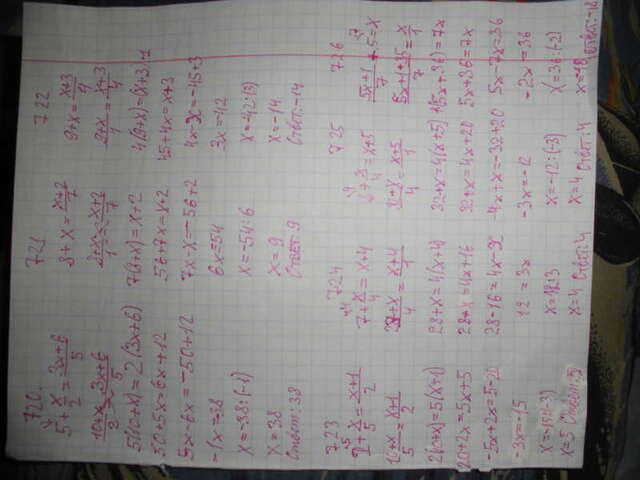 720.
5 + x/2 = 3x+6/5
10+x/2 = 3x+6/5
5(10+x) = 2(3x+6)
50+5x=6x+12
5x-6x=-50+12
-1x=-38
x=-38:(-1)
x=38
Ответ: 38
721
8+x = x+2/7
8+x/1 = x+2/7
7(8+x)=x+2
56+7x=x+2
7x-x=-56+2
6x=54
x=-54:6
x=9
Ответ: 9
722
9+x = x+3/4
9+x/1 = x+3/4
4(9+x)=(x+3)·1
45+4x=x+3
4x-x=-45+3
3x=-42
x=-42:(3)
x=-14
Ответ: -14
723
2 + x/5 = x+1/2
10+x/5 = x+1/2
2(10+x)=5(x+1)
20+2x=5x+5
-5x+2x=5-20
-3x=-15
x=5 Ответ: 5
724
7+x/4 = x+4
28+x/4 = x+4/1
28+x=4(x+4)
28+x=4x+16
28-16=4x-x
12=3x
x=12:3
x=4 Ответ: 4
725
8+x/4 = x+5
32+x/4 = x+5/1
32+x=4(x+5)
32+x=4x+20
-4x+x=-32+20
-3x=-12
x=-12:(-3)
x=4 Ответ: 4
726
5x+1/7 + 5 = x
5x+1+35/7 = x/1
(5x+36)=7x
5x+36=7x
5x-7x=36
-2x=36
x=36:(-2)
x=18
Ответ: -18